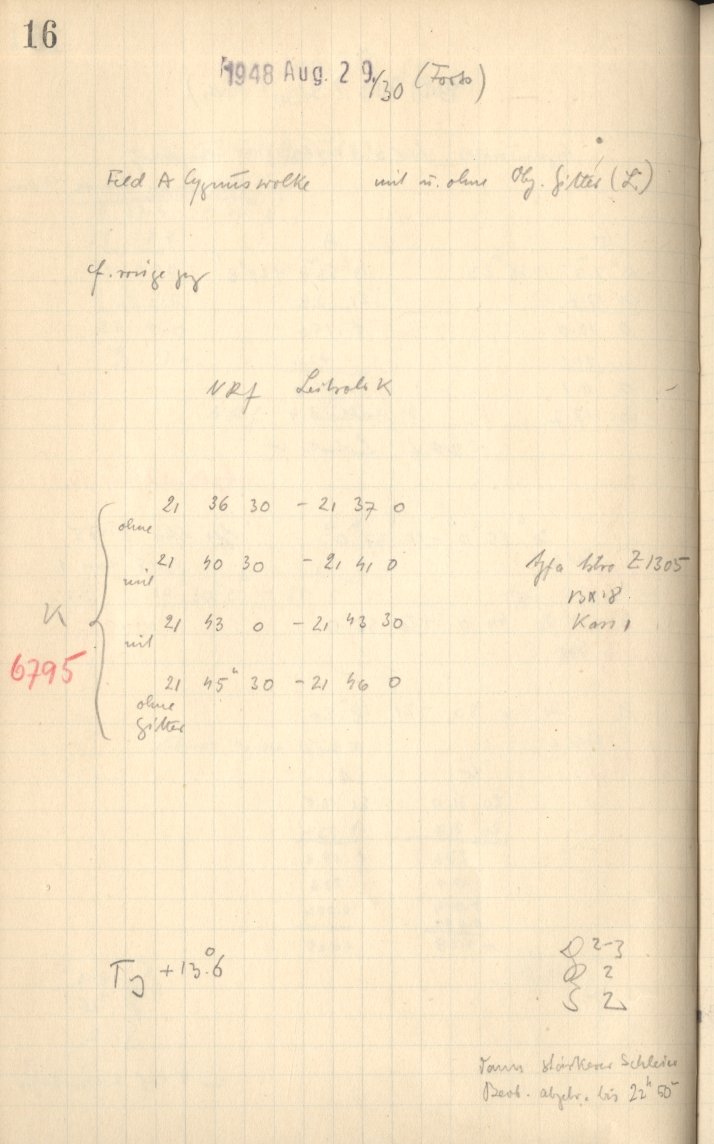 16
1948 Aug. 29./30 (Forts)
Feld A Cygnuswolke mit u. ohne Obj. Gitter (L.)
cf. vorige
NRf Leitrohr K
21 36 30 - 21 37 0
ohne
21 40 30 - 21 41 0
Agfa Astro Z 1305
mit
21 43 0 - 21 43 30
Kass 1
mit
K
6795
21 45 30 - 21 46 0
ohne
Gitter
+13°.6
2-3
2
S 2
Dann stärkerer Schleier
Beob. abgebr. bis 22h 50m